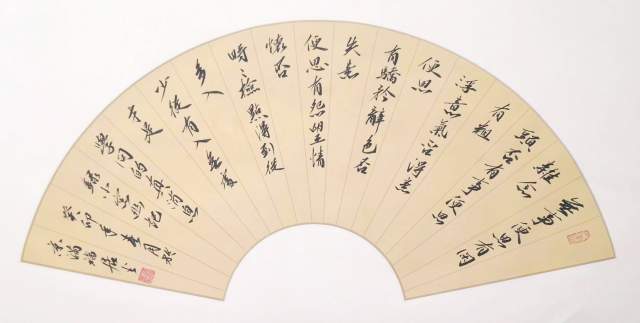 無事便思有閑
雜念
頭否有事便思
有粗
浮意氣否得意
便思
有驕矜辭色否
失意
便思有怨望情
懷否
時々檢點得到從
多入
少從有入無處
才是
學問的真消息
錄小窗幽記
癸卯年春月於
京